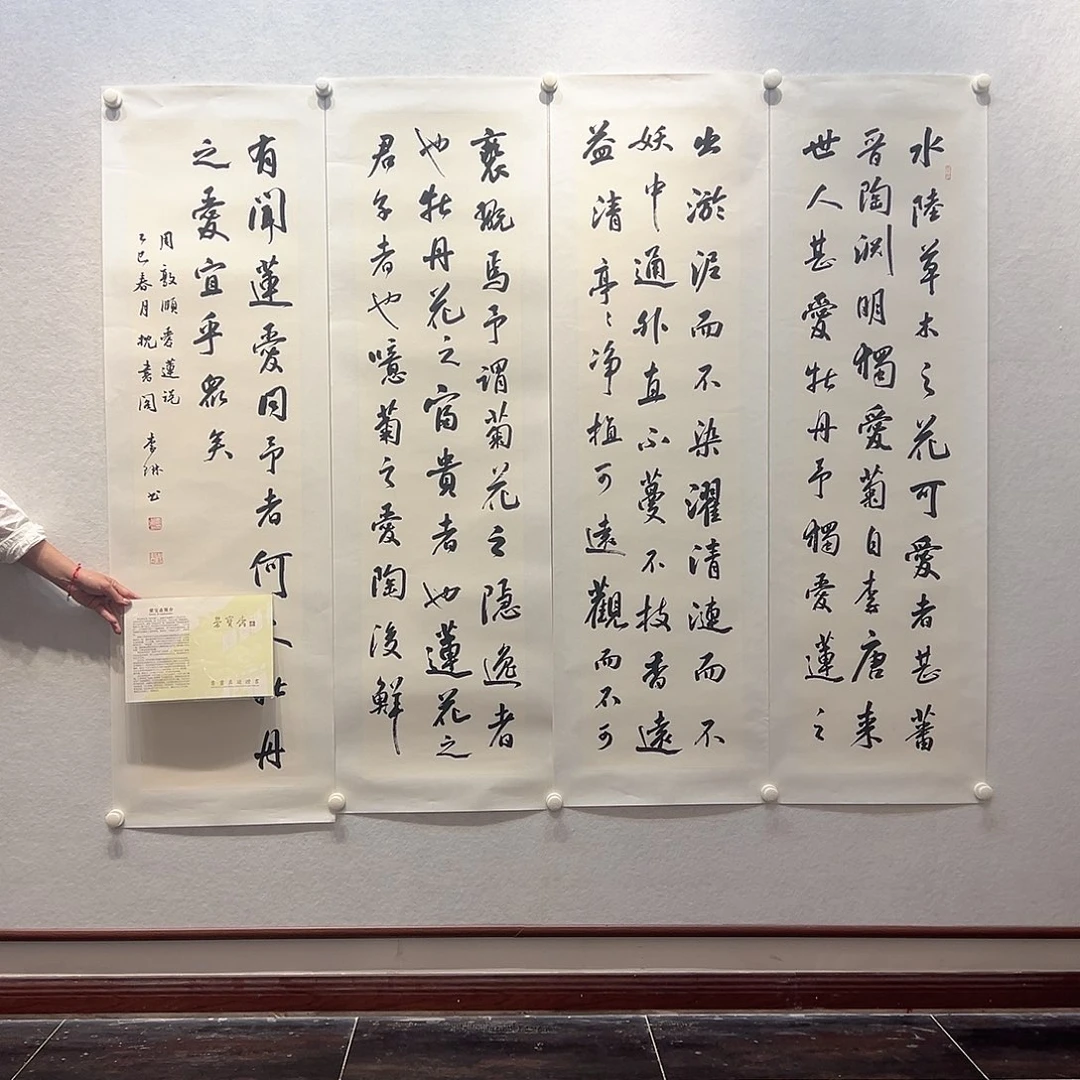 水陸草木之花可愛者甚蕃
晋陶渊明獨愛菊自李唐来
世人甚愛牡丹予獨愛蓮之
出淤泥而不染濯清漣而不
妖中通外直不蔓不枝香遠
益清亭〻净植可遠觀而不可
褻翫焉予谓菊花之隐逸者
也牡丹花之富貴者也蓮花之
君子者也噫菊之愛陶後鮮
有闻蓮愛同予者何人牡丹
之愛宜乎眾矣
周敦颐爱蓮说
乙巳春月枕書阁李琳书
榮寶齋